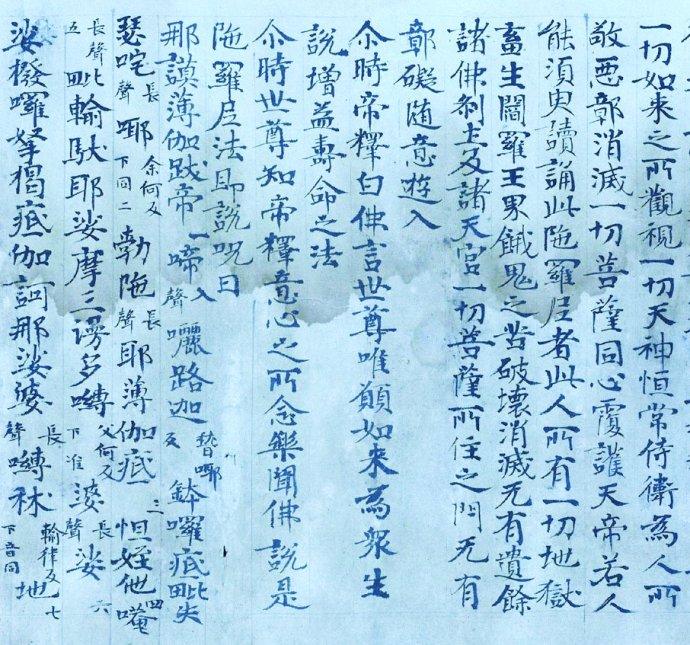 一切如来之所觀視一切天神恒常侍衛為人所
敬悪鄣消滅一切菩薩同心覆護天帝若人
能須臾讀誦此陁羅尼者此人所有一切地獄
畜生閻羅王界餓鬼之苦破壞消滅无有遺餘
諸佛剎土及諸天宮一切菩薩所住之門无有
鄣礙随意遊入
尒時帝釋白佛言世尊唯願如来為衆生
說增益壽命之法
尒時世尊知帝釋意心之所念樂聞佛說是
陁羅尼法即說呪曰
那謨薄伽跋帝一啼入聲囇路迦反鉢囉底毗失
瑟咤長聲耶余何反下同二勃陁長聲耶薄伽底三怛姪他四唵
長聲五毗輸馱耶娑摩三謗多嚩父何反下准婆長聲娑六
娑撥囉拏揭底伽訶那娑婆長聲嚩秫輸律反下音同地七